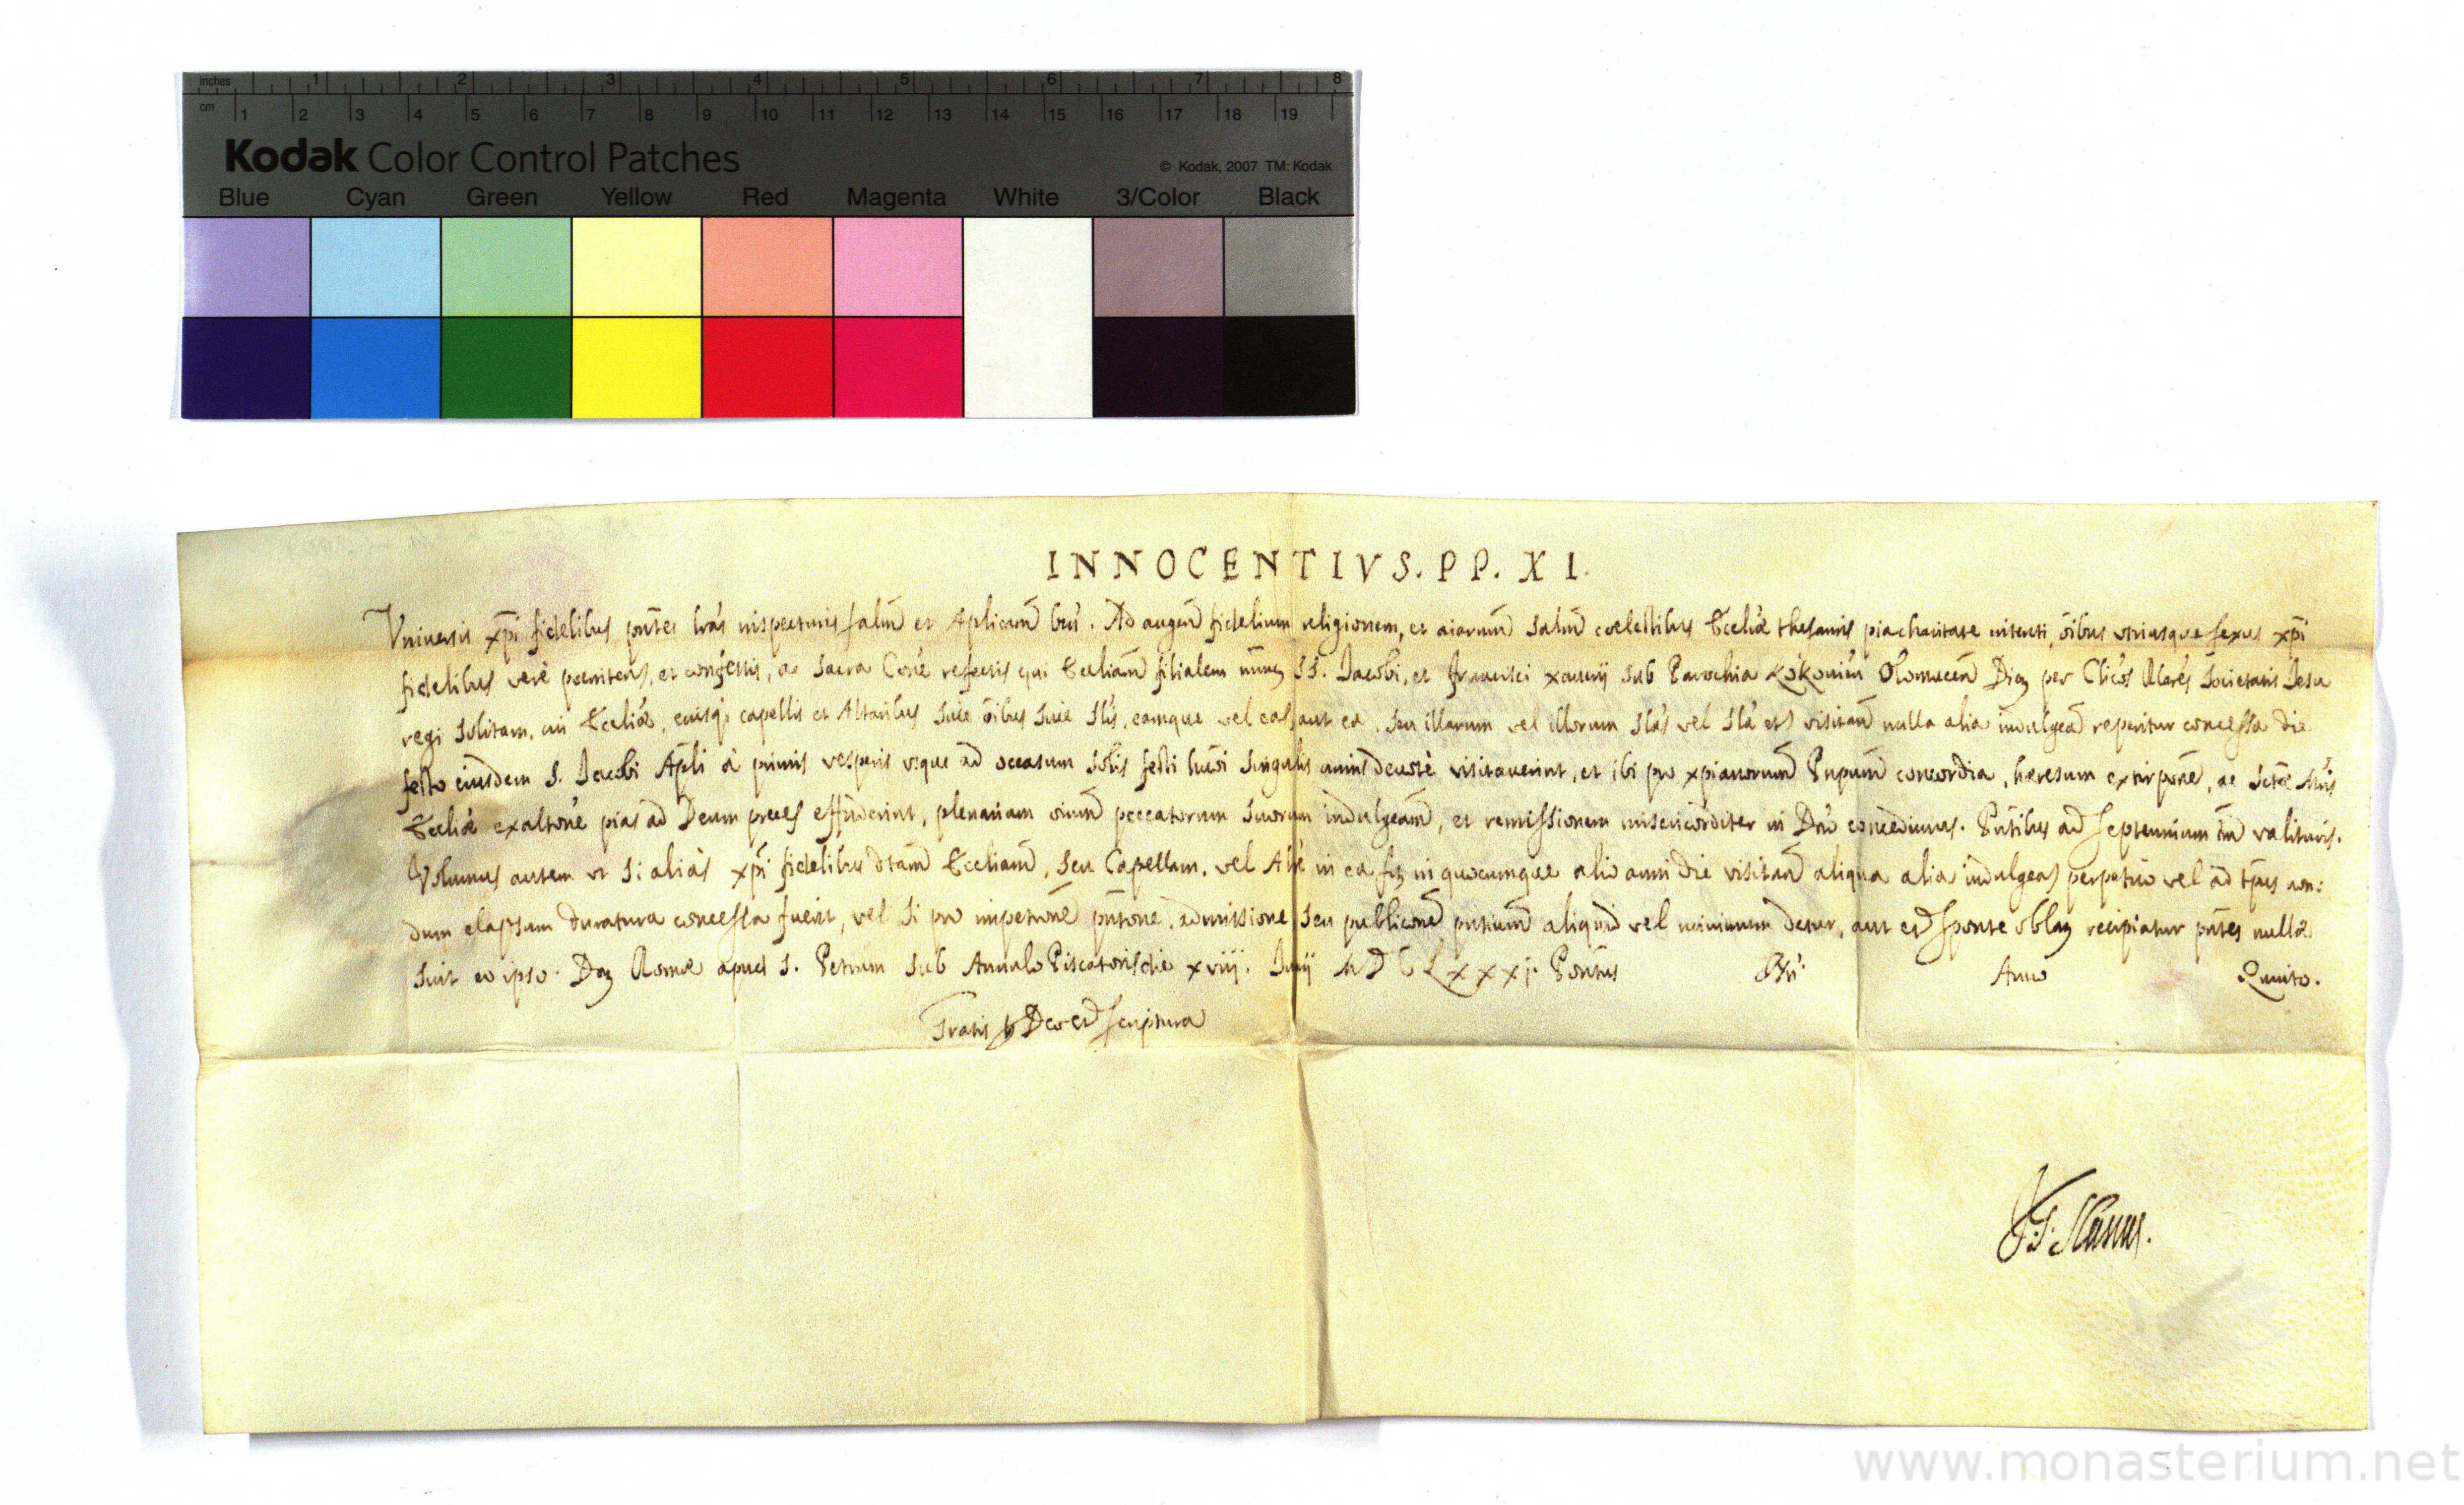 inches 1 2 3 4 5 6 7 8
cm 1 2 3 4 5 6 7 8 9 10 11 12 13 14 15 16 17 18 19
Kodak Color Control Patches
© Kodak, 2007 TM: Kodak
Blue Cyan Green Yellow Red Magenta White 3/Color Black
INNOCENTIVS. PP. XI.
Vniuersis xp̄i fidelibus pn̄tes lr̄as inspecturis salm̄ et Aplicam̄ ben̄. Ad augen̄ fidelium religionem, et aiarum̄ salm̄ coelestibus Eccliæ thesauris pia charitate intenti, ōibus vtriusque sexus xp̄i
fidelibus verè poeniten̄, et confessis, ac sacra Con̄e refectis qui Eccliam̄ filialem SS. Jacobi, et Francisci xauerij sub Parochia Olomucen̄ Dioc̄ per Clic̄os Societatis Jesu
regi solitam, cui Eccliæ, eiusq̄ capellis et Altaribus siue ōibus siue eamque vel eas aut ea, seu illarum vel illorum vel visitan̄ nulla alia indulgen̄ reperitur concessa die
festo eiusdem S. Jacobi Apl̄i à primis vesperis vsque ad occasum solis festi singulis annis deuotè visitauerint, et ibi pro xp̄ianorum̄ Pnpum̄ concordia, hæresum extirpon̄e, ac
Eccliæ exalton̄e pias ad Deum preces effuderint, plenariam oium̄ peccatorum suorum indulgeam̄, et remissionem misericorditer in Dn̄o concedimus. Pn̄tibus ad septennium tm̄ valituris.
Volumus autem vt si aliàs xp̄i fidelibus dtam̄ Eccliam̄, seu Capellam, vel Alt̄e in ea in quocumque alio anni die visitan̄ aliqua alia indulgen̄ perpetuo vel ad tp̄us non:
dum elapsum duratura concessa fuerit, vel si pro impetron̄e admissione seu publicon̄e pn̄tium̄ aliquid vel minimum detur, aut sponte recipiatur pn̄tes nullæ
sint eo ipso. Romæ apud S. Petrum sub Annulo Piscatoris die xviij. MDCLXXXj. Pontus Nri Anno Quinto.
Gratis p Deo et scriptura
www.monasterium.net